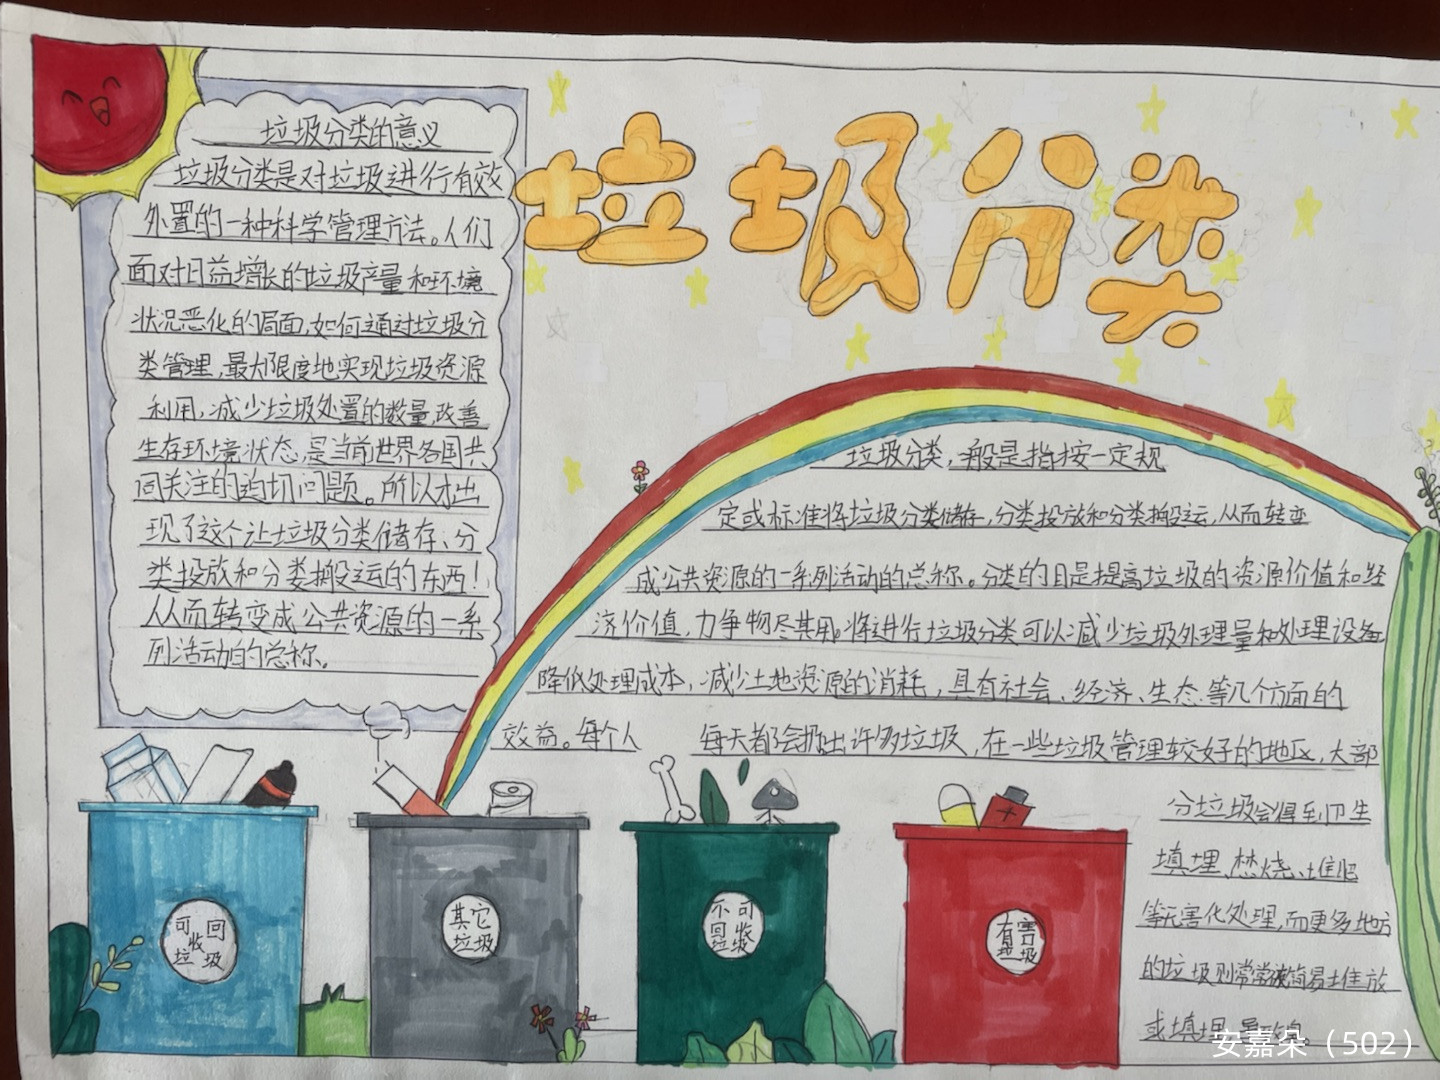 垃圾分类
垃圾分类的意义
垃圾分类是对垃圾进行有效
处置的一种科学管理方法。人们
面对日益增长的垃圾产量和环境
状况恶化的局面,如何通过垃圾分
类管理,最大限度地实现垃圾资源
利用,减少垃圾处置的数量,改善
生存环境状态,是当前世界各国共
同关注的迫切问题。所以才出
现了这个让垃圾分类储存、分
类投放和分类搬运的东西!
从而转变成公共资源的一系
列活动的总称。
垃圾分类,一般是指按一定规
定或标准将垃圾分类储存,分类投放和分类搬运,从而转变
成公共资源的一系列活动的总称。分类的目是提高垃圾的资源价值和经
济价值,力争物尽其用。将进行垃圾分类可以减少垃圾处理量和处理设备
降低处理成本,减少土地资源的消耗,具有社会、经济、生态等几个方面的
效益。每个人 每天都会扔出许多垃圾,在一些垃圾管理较好的地区,大部
分垃圾会得到卫生
填埋、焚烧、堆肥
等无害化处理,而更多地方
的垃圾则常常被简易堆放
或填埋
可回
收
垃圾
其它
垃圾
不可
回收
垃圾
有害
垃圾
安嘉朵（502）